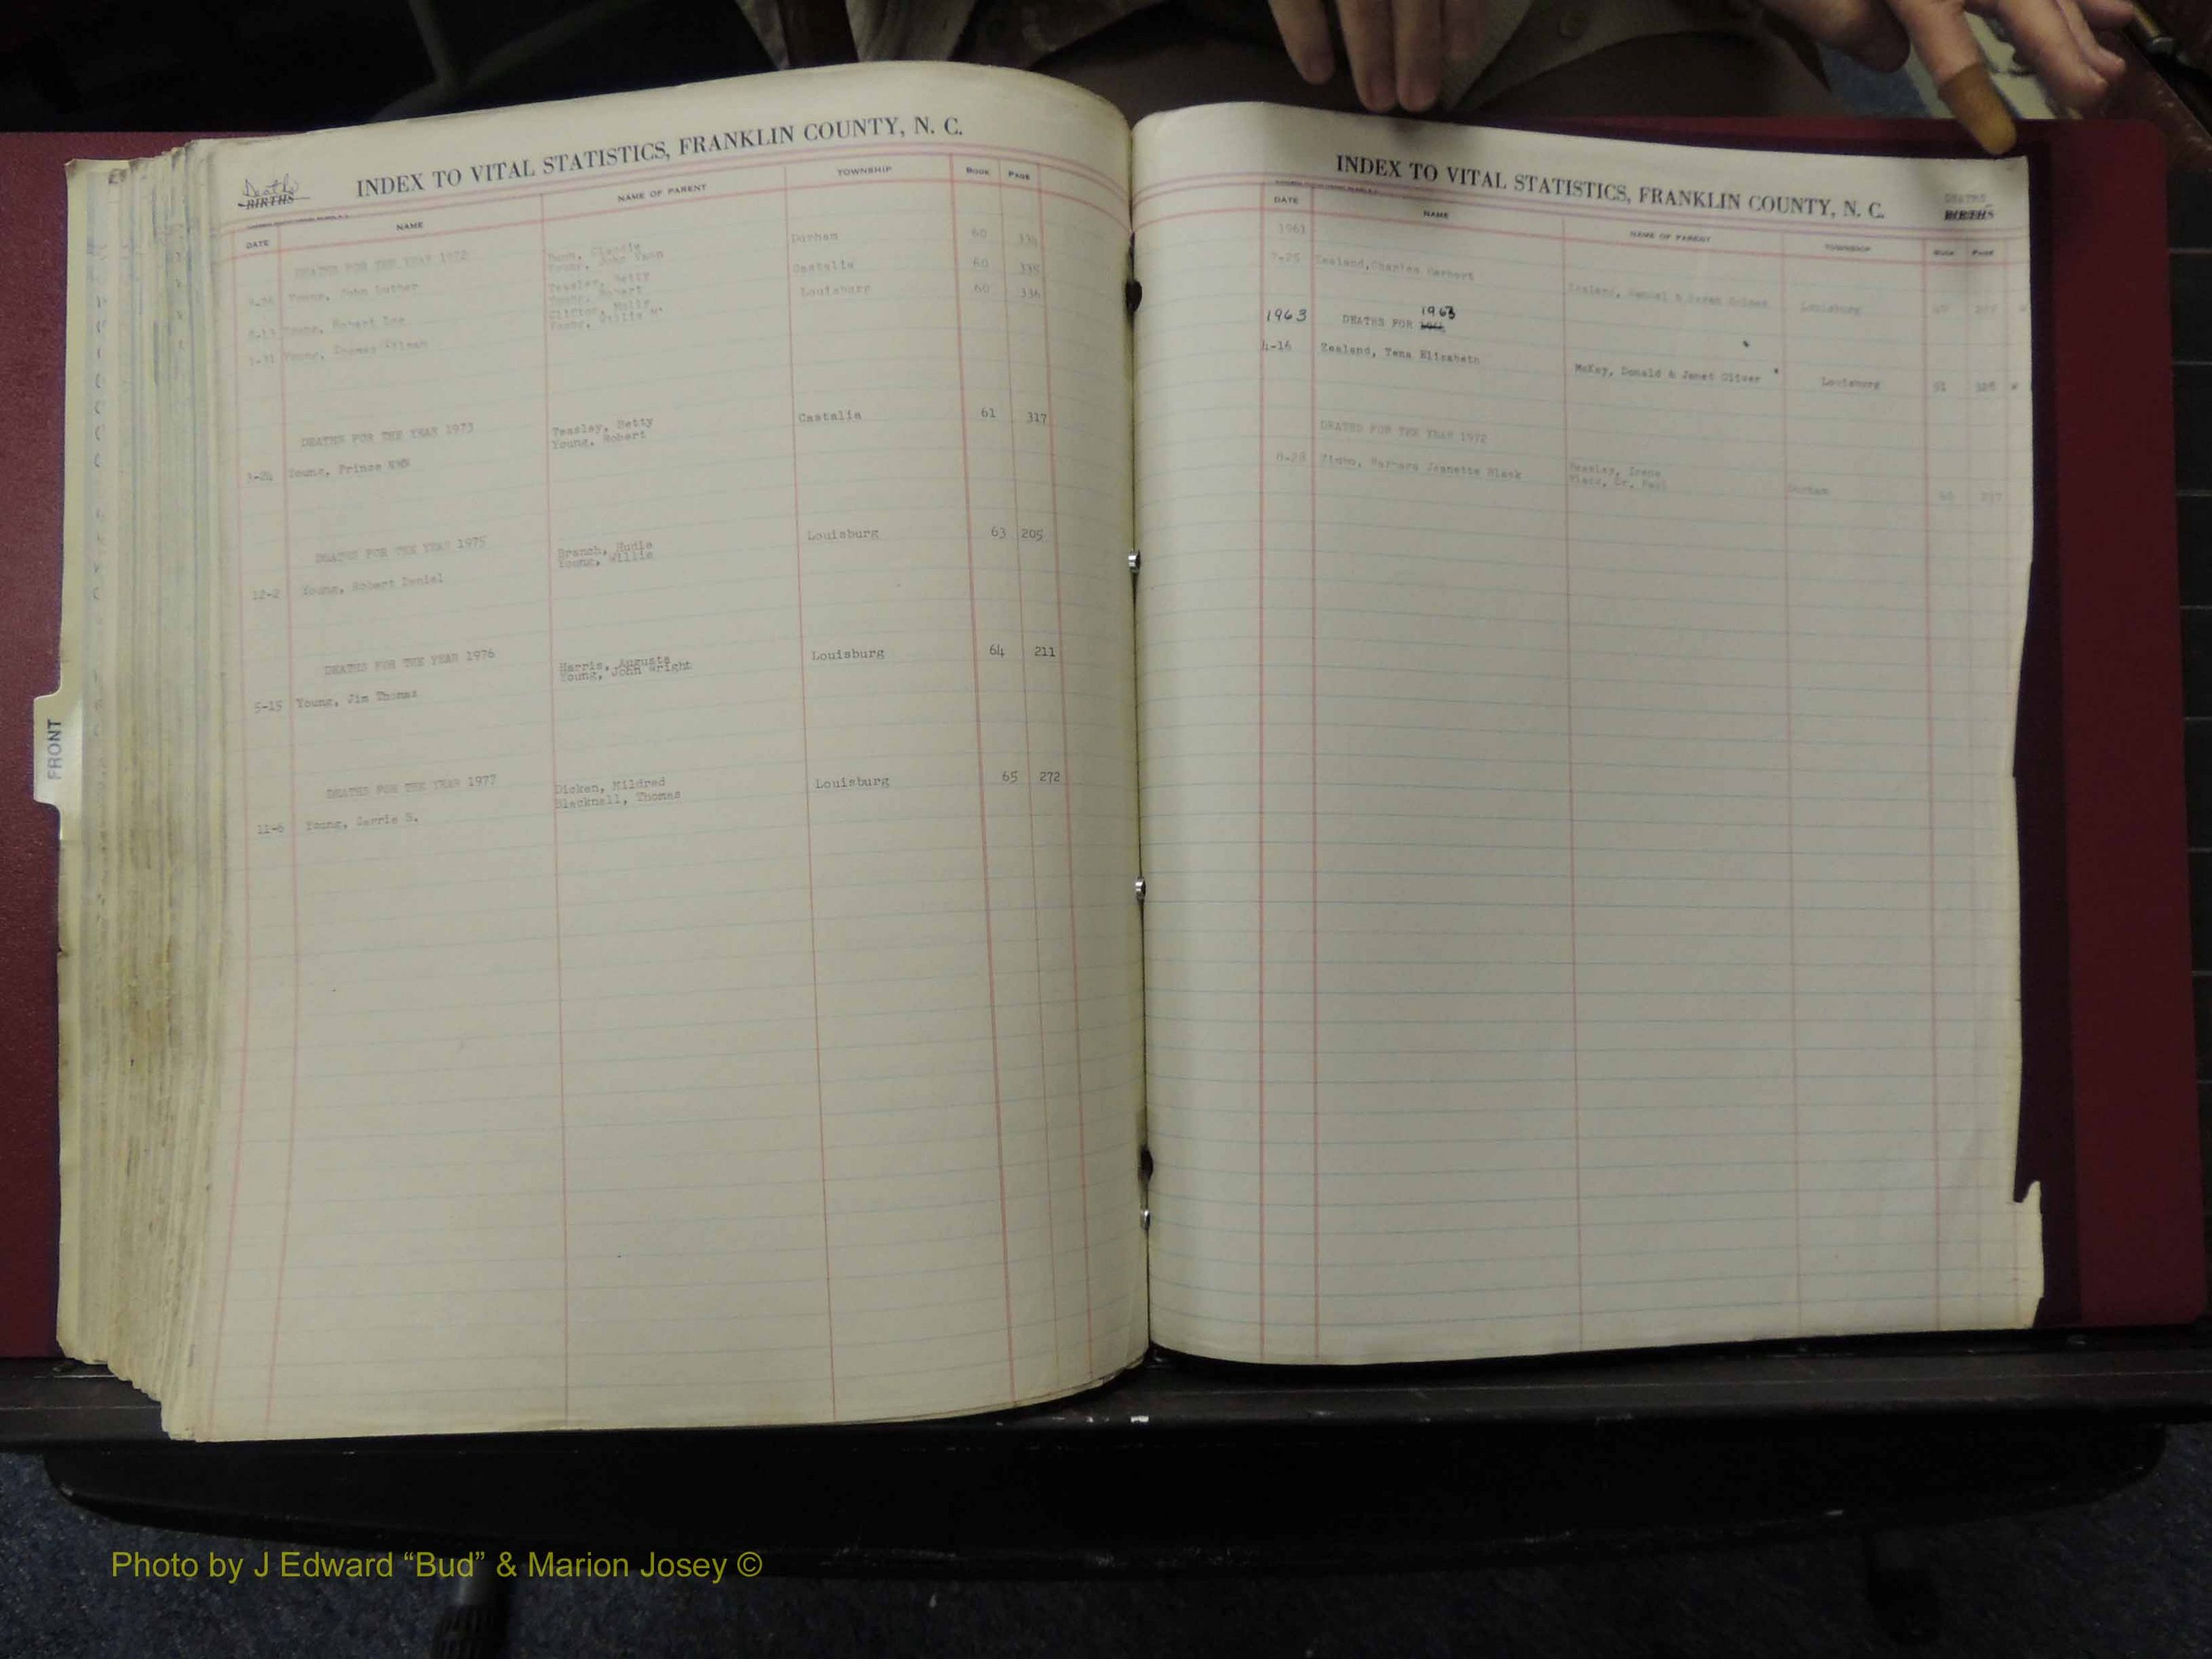 Deaths
BIRTHS
INDEX TO VITAL STATISTICS, FRANKLIN COUNTY, N. C.
DATE NAME NAME OF PARENT TOWNSHIP BOOK PAGE
DEATHS FOR THE YEAR
Young, John Luther Durham 60
Young, Robert Lee Teasley, Betty Young, Robert Castalia 60 335
Young, Thomas Clifton, Molly Young, Louisburg 60 336
DEATHS FOR THE YEAR 1973
Young, Prince Teasley, Betty Castalia 61 317
Young, Robert
DEATHS FOR THE YEAR 1975
12-2 Young, Robert Daniel Branch, Hudie Louisburg 63 205
Young, Willie
DEATHS FOR THE YEAR 1976
5-15 Young, Jim Thomas Harris, Augusta Louisburg 64 211
Young, John Wright
DEATHS FOR THE YEAR 1977
11-6 Young, B. Dicken, Mildred Louisburg 65 272
Blacknall, Thomas
FRONT
INDEX TO VITAL STATISTICS, FRANKLIN COUNTY, N. C.
DEATHS
BIRTHS
DATE NAME NAME OF PARENT TOWNSHIP BOOK PAGE
1961
7-25 Zealand, Charles Louisburg
1963
1963 DEATHS FOR
4-16 Zealand, Tena Elizabeth McKay, Donald & Janet Louisburg 51 328
DEATHS FOR THE YEAR 1972
8-28 Barbara Jeanette Black Beasley, Irene Durham
Black, Dr. Paul
Photo by J Edward “Bud” & Marion Josey ©